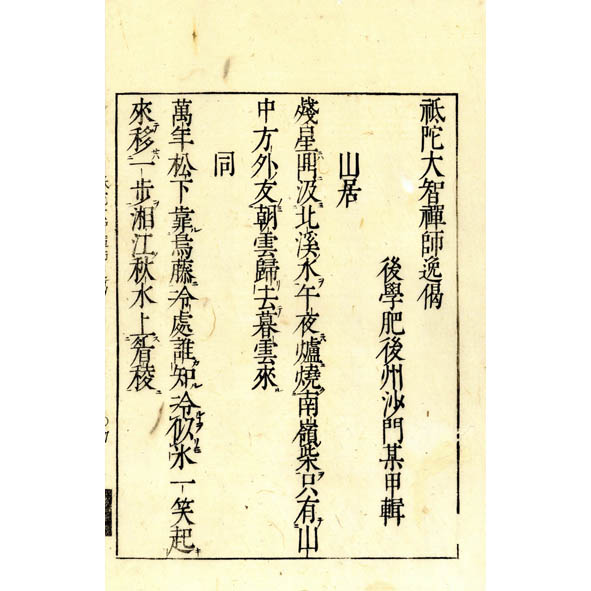 祇陀大智禪師逸偈
後學肥後州沙門某甲輯
山居
殘星汲北溪水午夜爐燒南嶺柴只有山
中方外友朝雲歸去暮雲來
同
萬年松下靠烏藤冷處誰知冷似氷一笑起
來移一步湘江秋水上眉稜